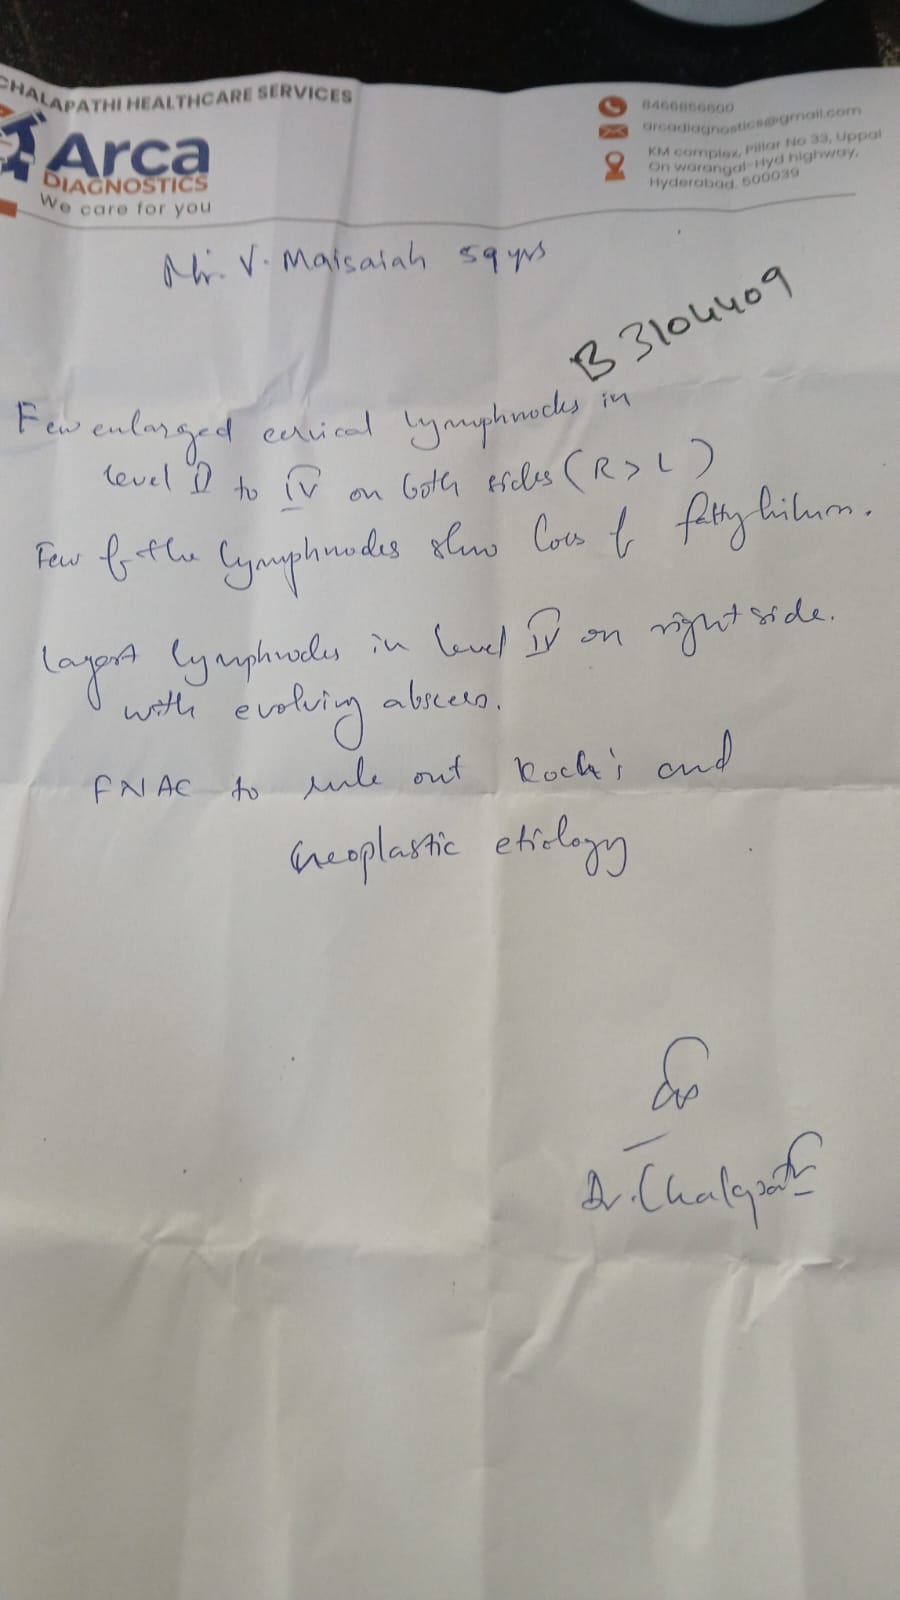 CHALAPATHI HEALTHCARE SERVICES
Arca
DIAGNOSTICS
We care for you
8466866600
arcadiagnostics@gmail.com
KM complex, Pillar No 33, Uppal
On warangal-Hyd highway,
Hyderabad, 500039
Mr. V. Maisaiah 59 yrs
B3104409
Few enlarged cervical lymphnodes in
level II to IV on both sides (R > L)
Few of the lymphnodes show loss of fatty hilum.
largest lymphnodes in level IV on right side.
with evolving abscess.
FNAC to rule out Koch's and
neoplastic etiology
Dr. Chalapathi